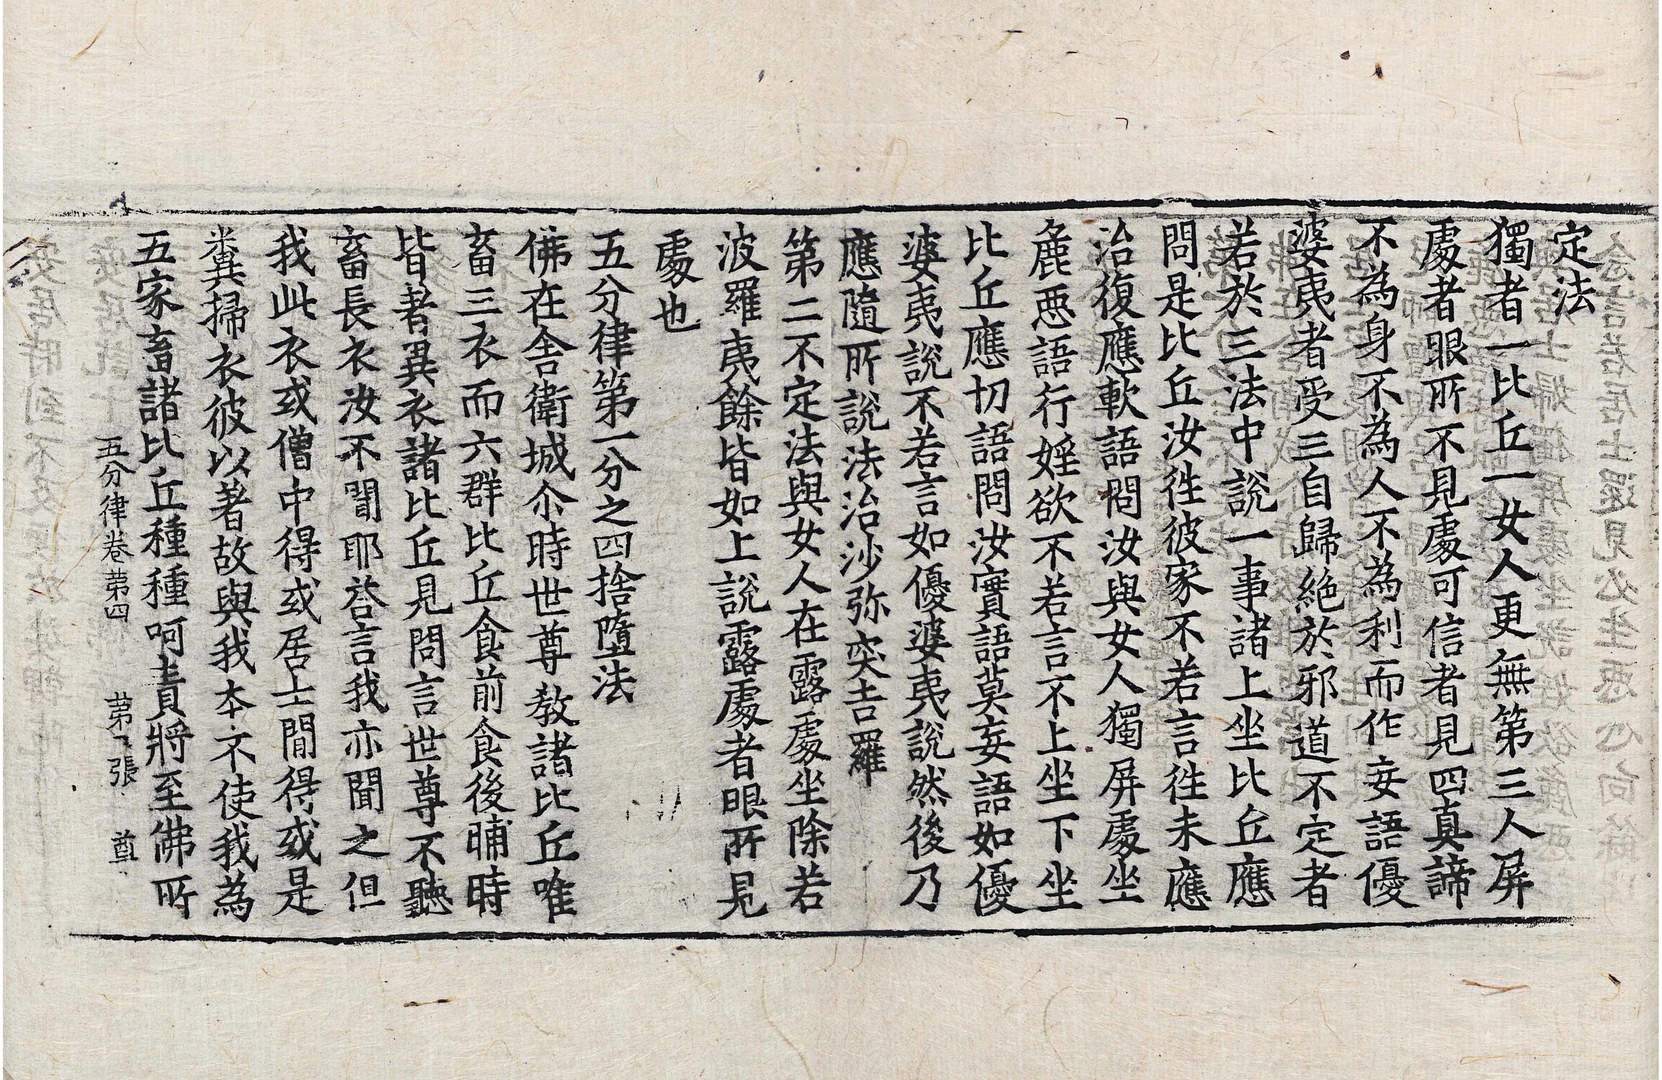 定法
獨者一比丘一女人更無第三人屏
處者眼所不見處可信者見四真諦
不為身不為人不為利而作妄語優
婆夷者受三自歸絶於邪道不定者
若於三法中說一事諸上坐比丘應
問是比丘汝徃彼家不若言徃未應
治復應軟語問汝與女人獨屏處坐
麁惡語行婬欲不若言不上坐下坐
比丘應切語問汝實語莫妄語如優
婆夷說不若言如優婆夷說然後乃
應隨所說法治沙弥突吉羅
第二不定法與女人在露處坐除若
波羅夷餘皆如上說露處者眼所見
處也
五分律第一分之四捨墮法
佛在舍衛城尒時世尊教諸比丘唯
畜三衣而六群比丘食前食後晡時
皆著異衣諸比丘見問言世尊不聽
畜長衣汝不聞耶荅言我亦聞之但
我此衣或僧中得或居士間得或是
糞掃衣彼以著故與我本不使我為
五家畜諸比丘種種呵責將至佛所
五分律卷苐四 苐 張